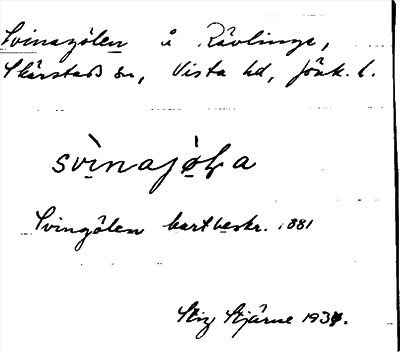 Svinagölen å Rävlinge,
Skärstads sn, Vista hd, Jönk. l.
svìnajø̀ɫa
Svingölen kartbeskr. 1881
Stig Stjärne 1934.